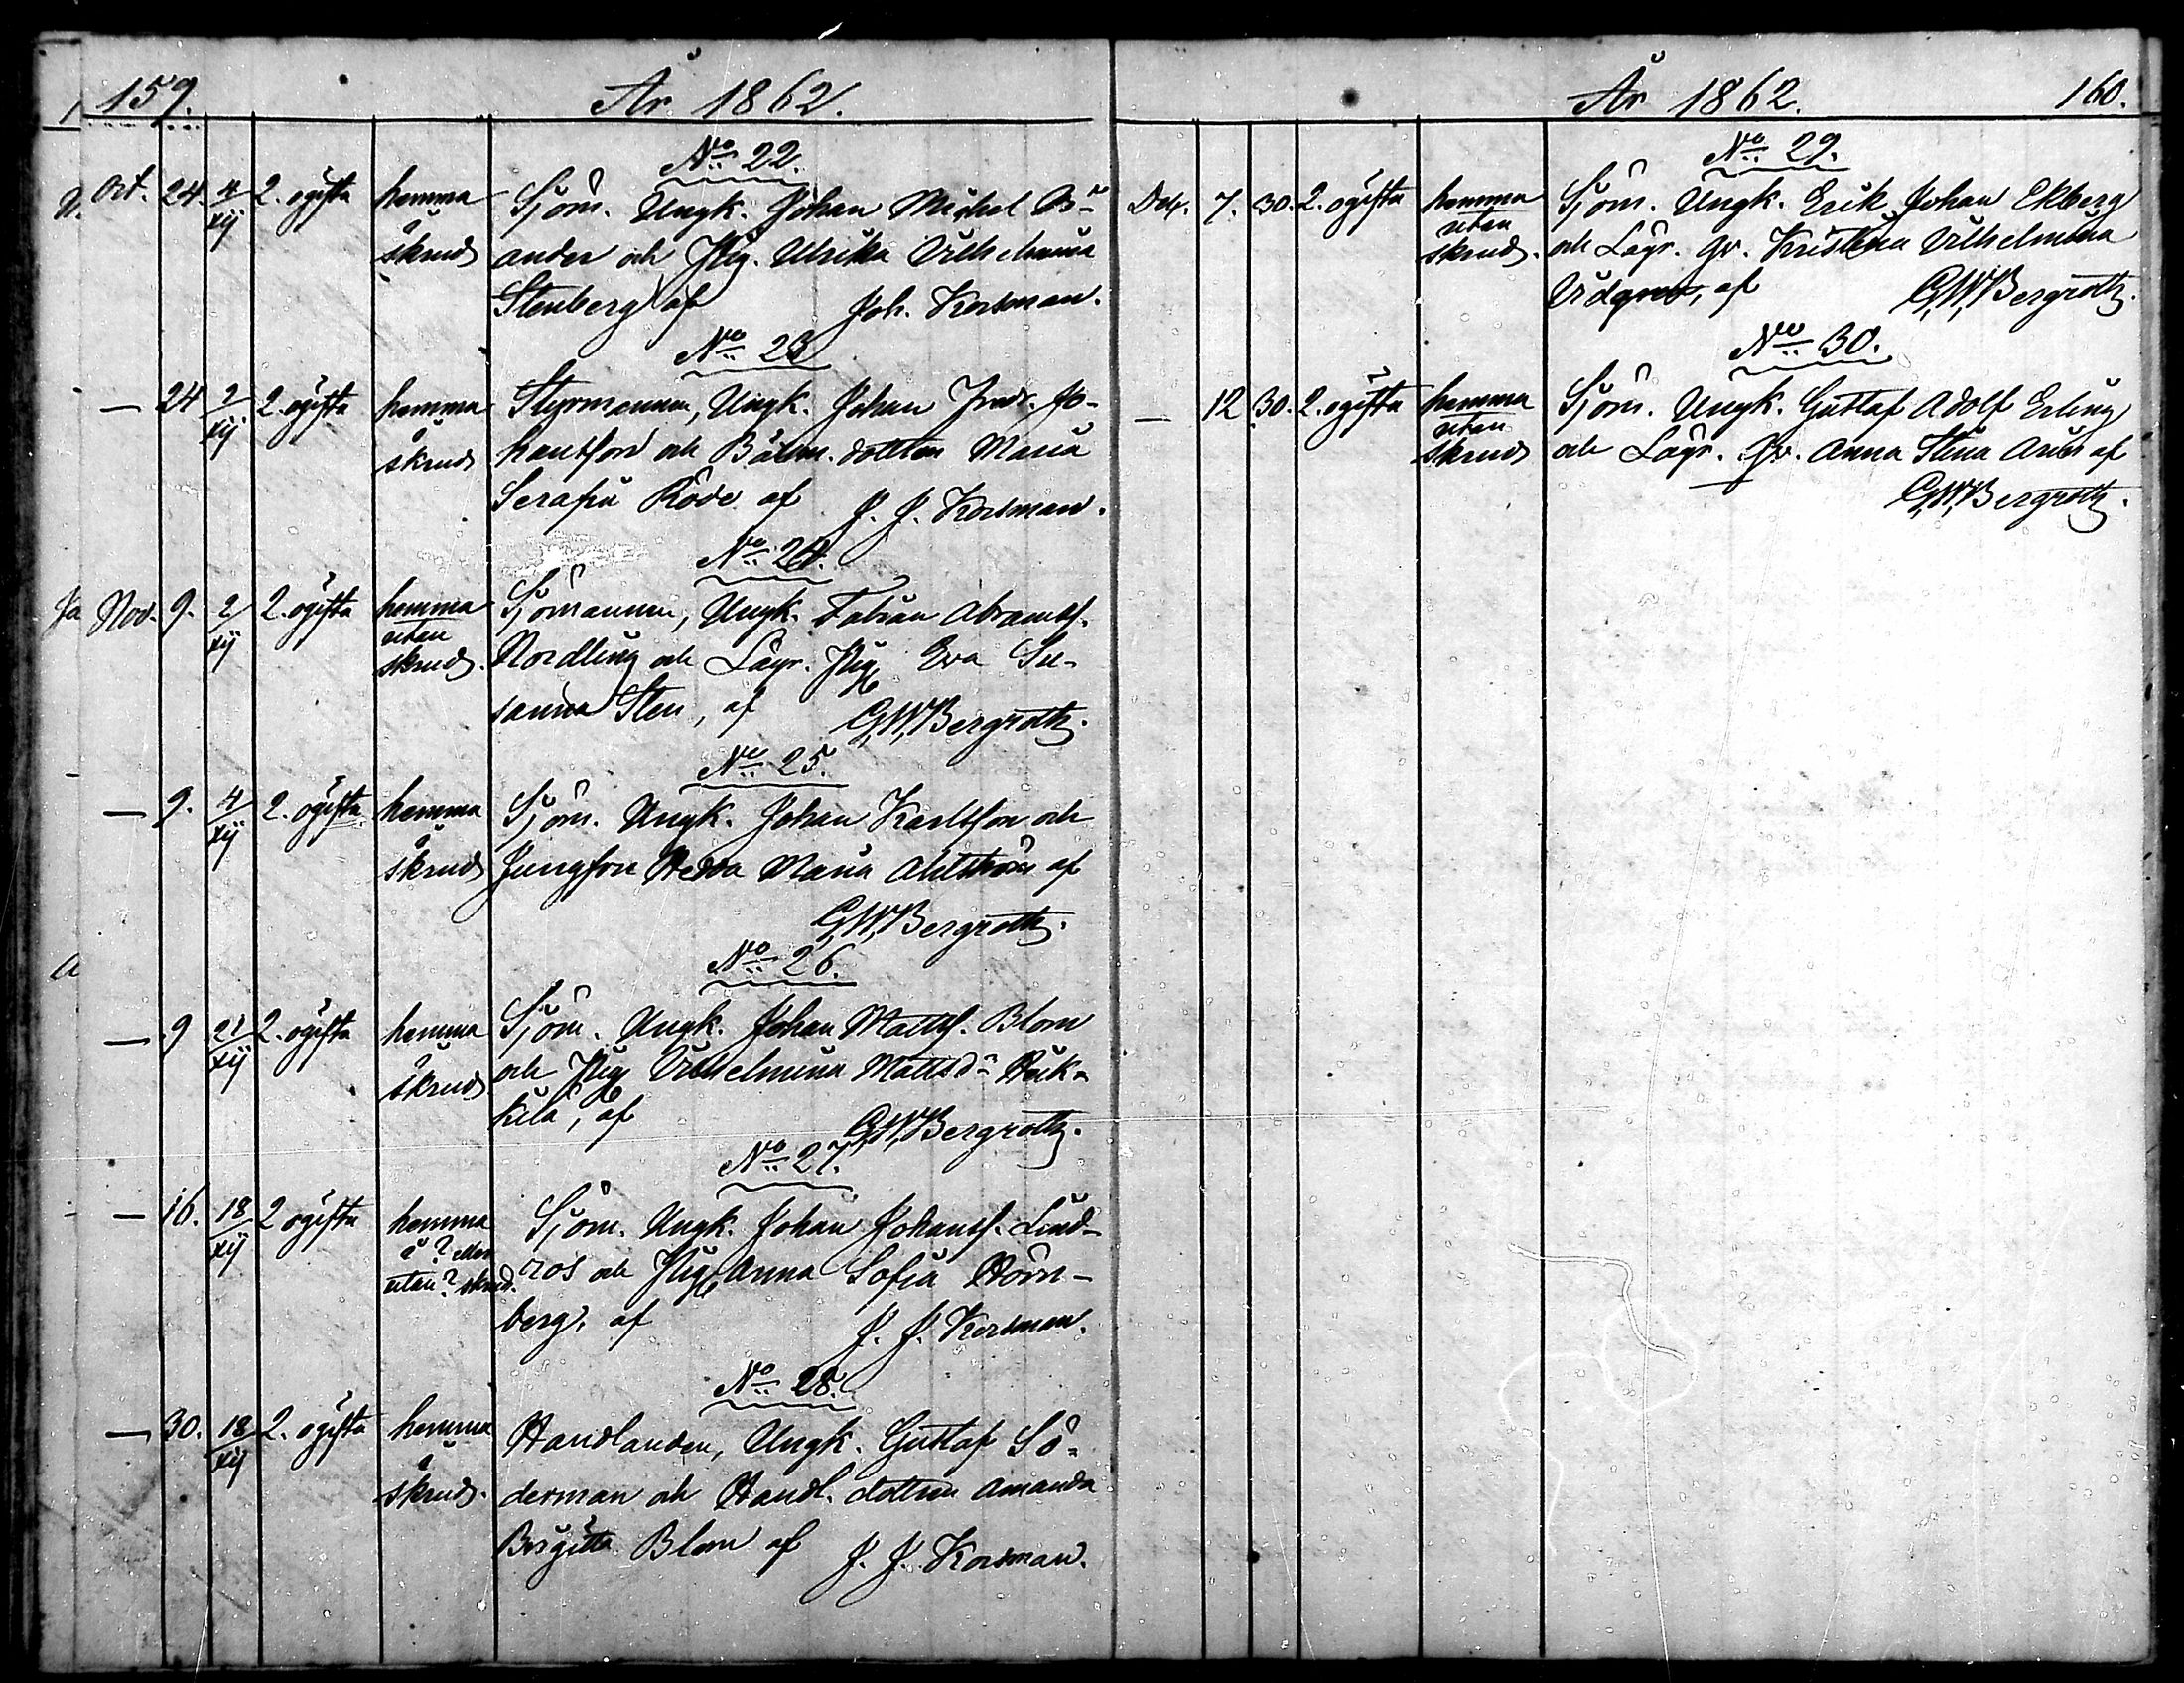 159.
År 1862.
No 22.
Oct. 24. 4/xij 2. ogifta hemma å skrud
Sjöm. Ungk. Johan Michel Bo-
ander och Pig. Ulrika Vilhelmina
Stenberg af Joh. Korsman.
No 23
— 24 2/xij 2. ogifta hemma å skrud
Styrmannen, Ungk. Johan Fredr. Jo-
hansson och Båtsm. dottren Maria
Serafia Rode af J. J. Korsman.
No 24.
Nov. 9. 2/xij 2. ogifta hemma utan skrud.
Sjömannen, Ungk. Fabian Abramss.
Nordling och Lägr. Pig. Eva Su-
sanna Sten, af G,W,Bergroth.
No 25.
— 9. 4/xij 2. ogifta hemma å skrud
Sjöm. Ungk. Johan Karlsson och
Jungfru Hedda Maria Ahlström af
G,W,Bergroth.
No 26.
— 9 21/xij 2. ogifta hemma å skrud
Sjöm. Ungk. Johan Mattss. Blom
och Pig. Vilhelmina Mattsd:r
kilä, af G,W,Bergroth.
No 27.
— 16. 18/xij 2 ogifta hemma å? eller utan? skrud.
Sjöm. Ungk. Johan Johanss. Lind-
ros och Pig. Anna Sofia Hörn-
berg, af J. J. Korsman.
No 28.
— 30. 18/xij 2. ogifta hemma å skrud.
Handlanden, Ungk. Gustaf Sö-
derman och Handl. dottren Amanda
Birgitta Blom af J. J. Korsman.
År 1862.
160.
No 29.
Dec. 7. 30. 2. ogifta hemma utan skrud.
Sjöm. Ungk. Erik Johan Ekberg
och Lägr. Gr. Kristina Vilhelmina
Vidgren, af G,W,Bergroth.
No 30.
— 12 30. 2. ogifta hemma utan skrud
Sjöm. Ungk. Gustaf Adolf Erling
och Lägr. Gr. Anna Stina af
G,W,Bergroth.